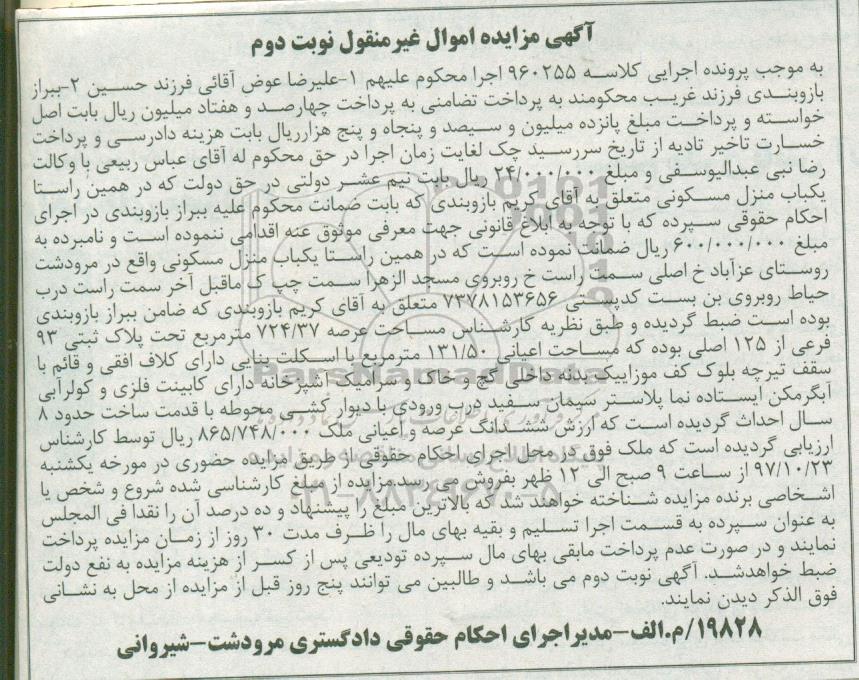 آگهی مزایده اموال غیرمنقول نوبت دوم
به موجب پرونده اجرایی کلاسه ۹۶۰۲۵۵ اجرا محکوم علیهم ۱-علیرضا عوض آقائی فرزند حسین ۲-ببراز
بازوبندی فرزند غریب محکومند به پرداخت تضامنی به پرداخت چهارصد و هفتاد میلیون ریال بابت اصل
خواسته و پرداخت مبلغ پانزده میلیون و سیصد و پنجاه و پنج هزارریال بابت هزینه دادرسی و پرداخت
خسارت تاخیر تادیه از تاریخ سررسید چک لغایت زمان اجرا در حق محکوم له آقای عباس ربیعی با وکالت
رضا نبی عبدالیوسفی و مبلغ ۲۴/۰۰۰/۰۰۰ ریال بابت نیم عشر دولتی در حق دولت که در همین راستا
یکباب منزل مسکونی متعلق به آقای کریم بازوبندی که بابت ضمانت محکوم علیه ببراز بازوبندی در اجرای
احکام حقوقی سپرده که با توجه به ابلاغ قانونی جهت معرفی موثوق عنه اقدامی ننموده است و نامبرده به
مبلغ ۶۰۰/۰۰۰/۰۰۰ ریال ضمانت نموده است که در همین راستا یکباب منزل مسکونی واقع در مرودشت
روستای عزآباد خ اصلی سمت راست خ روبروی مسجد الزهرا سمت چپ ک ماقبل آخر سمت راست درب
حیاط روبروی بن بست کدپستی ۷۳۷۸۱۵۳۶۵۶ متعلق به آقای کریم بازوبندی که ضامن ببراز بازوبندی
بوده است ضبط گردیده و طبق نظریه کارشناس مساحت عرصه ۷۲۴/۳۷ مترمربع تحت پلاک ثبتی ۹۳
فرعی از ۱۲۵ اصلی بوده که مساحت اعیانی ۱۳۱/۵۰ مترمربع با اسکلت بنایی دارای کلاف افقی و قائم با
سقف تیرچه بلوک کف موزاییک بدنه داخلی گچ و خاک و سرامیک آشپزخانه دارای کابینت فلزی و کولرآبی
آبگرمکن ایستاده نما پلاستر سیمان سفید درب ورودی با دیوار کشی محوطه با قدمت ساخت حدود ۸
سال احداث گردیده است که ارزش ششدانگ عرصه و اعیانی ملک ۸۶۵/۷۴۸/۰۰۰ ریال توسط کارشناس
ارزیابی گردیده است که ملک فوق در محل اجرای احکام حقوقی از طریق مزایده حضوری در مورخه یکشنبه
۹۷/۱۰/۲۳ از ساعت ۹ صبح الی ۱۲ ظهر بفروش می رسد.مزایده از مبلغ کارشناسی شده شروع و شخص یا
اشخاصی برنده مزایده شناخته خواهند شد که بالاترین مبلغ را پیشنهاد و ده درصد آن را نقدا فی المجلس
به عنوان سپرده به قسمت اجرا تسلیم و بقیه بهای مال را ظرف مدت ۳۰ روز از زمان مزایده پرداخت
نمایند و در صورت عدم پرداخت مابقی بهای مال سپرده تودیعی پس از کسر از هزینه مزایده به نفع دولت
ضبط خواهدشد. آگهی نوبت دوم می باشد و طالبین می توانند پنج روز قبل از مزایده از محل به نشانی
فوق الذکر دیدن نمایند.
۱۹۸۲۸/م.الف-مدیراجرای احکام حقوقی دادگستری مرودشت-شیروانی
ParsNamadData